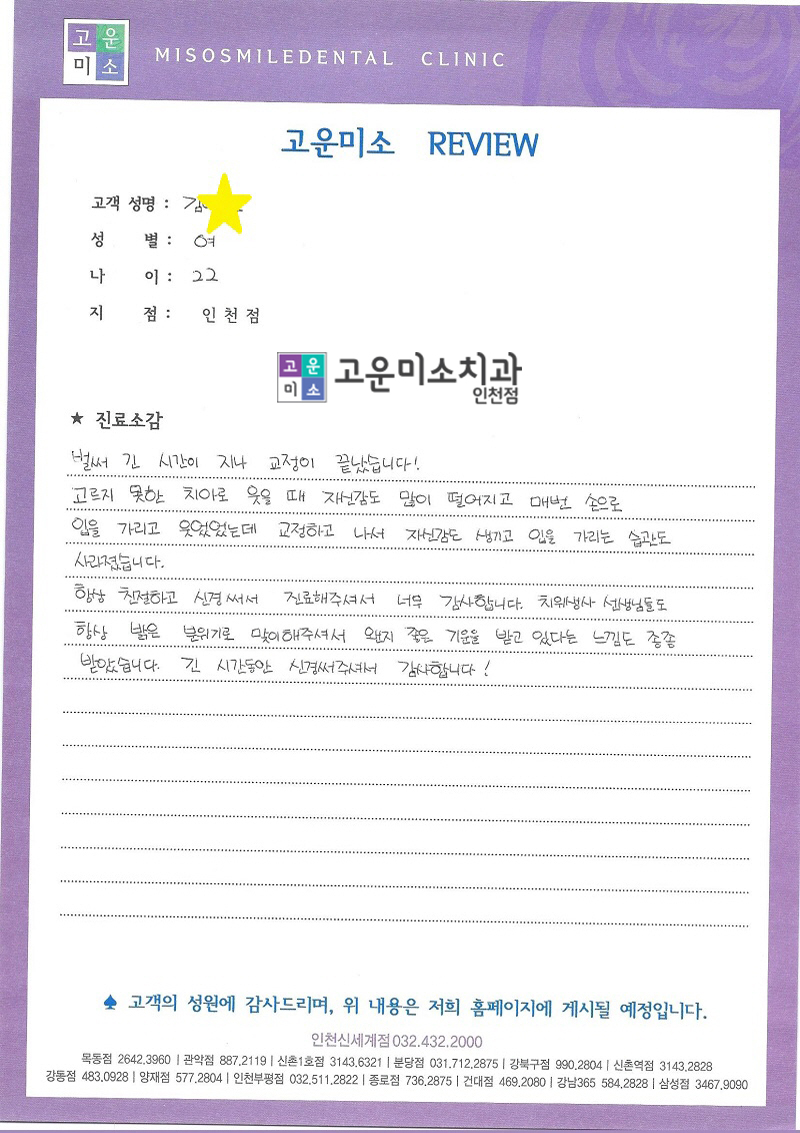 고운
미소
MISOSMILEDENTAL CLINIC
고운미소 REVIEW
고객 성명 : 김
성 별 : 여
나 이 : 22
지 점 : 인천점
고운
미소
고운미소치과
인천점
★ 진료소감
벌써 긴 시간이 지나 교정이 끝났습니다!
고르지 못한 치아로 웃을 때 자신감도 많이 떨어지고 매번 손으로
입을 가리고 웃었었는데 교정하고 나서 자신감도 생기고 입을 가리는 습관도
사라졌습니다.
항상 친절하고 신경써서 진료해주셔서 너무 감사합니다. 치위생사 선생님들도
항상 밝은 분위기로 맞이해주셔서 왠지 좋은 기운을 받고 있다는 느낌도 종종
받았습니다. 긴 시간동안 신경써주셔서 감사합니다!
♠ 고객의 성원에 감사드리며, 위 내용은 저희 홈페이지에 게시될 예정입니다.
인천신세계점 032.432.2000
목동점 2642.3960 | 관악점 887.2119 | 신촌1호점 3143.6321 | 분당점 031.712.2875 | 강북구점 990.2804 | 신촌역점 3143.2828
강동점 483.0928 | 양재점 577.2804 | 인천부평점 032.511.2822 | 종로점 736.2875 | 건대점 469.2080 | 강남365 584.2828 | 삼성점 3467.9090